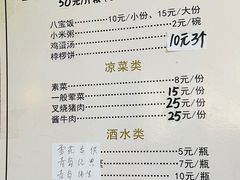 50元
八宝饭 10元/小份、15元/大份
小米粥 2元/碗
鸡蛋汤 10元3个
桲椤饼
凉菜类
素菜 8元/份
一般荤菜 15元/份
叉烧猪肉 25元/份
酱牛肉 25元/份
酒水类
5元/瓶
7元/瓶
10元/瓶